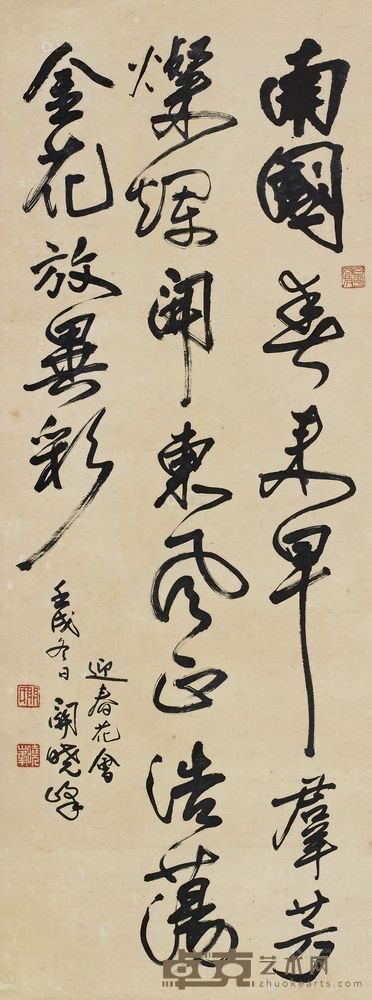 南國春来早群芳
燦爛開東風正浩蕩
金花放異彩
迎春花會
壬戌冬日 關曉峰
卓克艺术网
www.zhuokearts.com